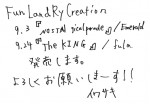 Fun Landry Creation
9.3 『NOSTALgical parade』/ Emerald
9.24 『The KING』/ Sula
発売します。
よろしくお願いしまーす!!
イワサキ